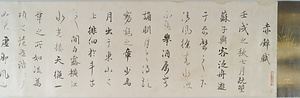 赤壁賦
壬戌之秋七月既望
蘇子與客泛舟遊
于赤壁之下清
風徐來水波不
興舉酒屬客
誦明月之詩歌
窈窕之章少焉
月出于東山之
上徘徊于斗牛
之間白露橫江
水光接天縱一
葦之所如凌萬
頃之茫然浩